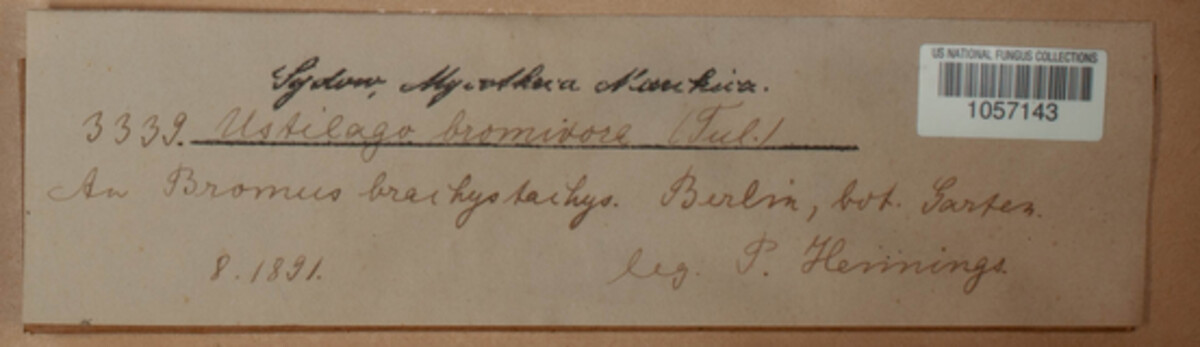 Sydow, Mycotheca Marchica.
3339. Ustilago bromivora (Tul.)
An Bromus brachystachys. Berlin, bot. Garten.
8. 1891. leg. P. Hennings.
US NATIONAL FUNGUS COLLECTIONS
1057143